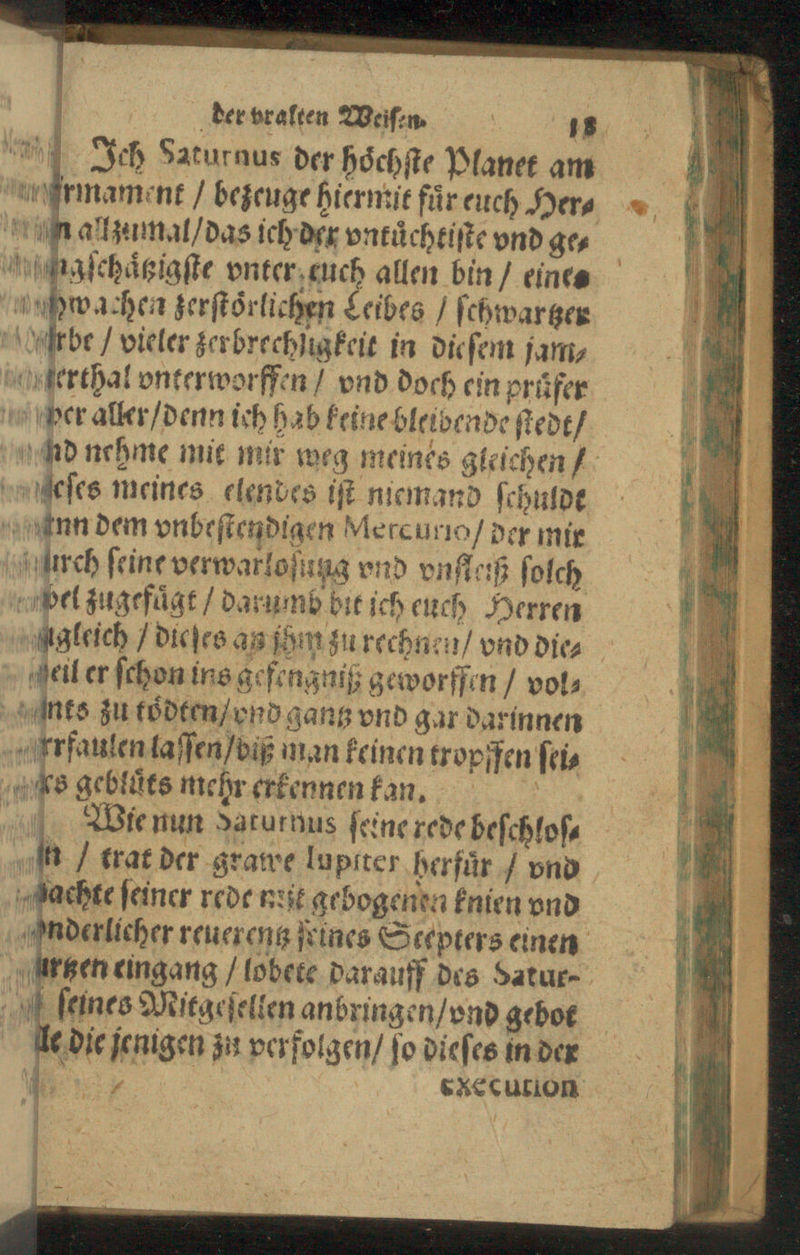 der vralten Weiſen. 18
Ich Saturnus der hoͤchſte Planet am
rmament / bezeuge hiermit fuͤr euch Her⸗
n allzumal/das ich der vntuͤchtiſte vnd ge⸗
gſchaͤtzigſte vnter euch allen bin / eines
hwachen zerſtoͤrlichen Leibes / ſchwartzer
rbe / vieler zerbrechligkeit in dieſem jam⸗
erthal vnterworffen / vnd doch ein pruͤfer
ber aller/denn ich hab keine bleibende ſtedt/
nd nehme mit mir weg meines gleichen /
eſes meines elendes iſt niemand ſchuldt
nn dem vnbeſtendigen Mercurio/ der mir
urch ſeine verwarloſung vnd vnfleiß ſolch
bel zugefuͤgt / darumb bit ich euch Herren
gleich / dieſes an jhm zu rechnen/ vnd die⸗
eil er ſchon ins gefengniß geworffen / vol⸗
nts zu toͤdten/vnd gantz vnd gar darinnen
rfaulen laſſen/biß man keinen tropffen ſei⸗
es gebluͤts mehr erkennen kan.
Wie nun Saturnus ſeine rede beſchloſ⸗
n / trat der grawe Iupiter herfuͤr / vnd
achte ſeiner rede mit gebogenen knien vnd
nderlicher reuerentz ſeines Scepters einen
urtzen eingang / lobete darauff des Satur-
ſeines Mitgeſellen anbringen/vnd gebot
le die jenigen zu verfolgen/ ſo dieſes in der
execution